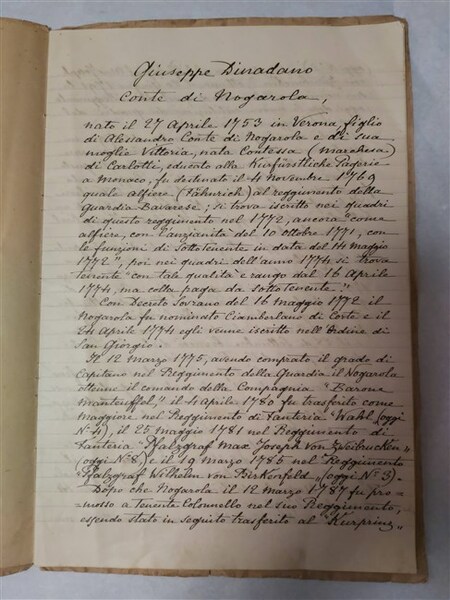 Giuseppe Dinadano
Conte di Nogarola,
nato il 27 Aprile 1753 in Verona, figlio
di Alessandro Conte di Nogarola e di sua
moglie Vittoria, nata Contessa (Marchesa)
di Carlotti, educato alla Kurfürstliche Pagerie
a Monaco, fu destinato il 4 Novembre 1769
quale alfiere (Fähnrich) al reggimento della
Guardia Bavarese; si trova iscritto nei quadri
di questo reggimento nel 1772, ancora "come
alfiere, con l'anzianità del 10 ottobre 1771, con
le funzioni di Sottotenente in data del 14 Maggio
1772", poi nei quadri dell'anno 1774 si trova
tenente "con tale qualità e rango dal 16 Aprile
1774, ma colla paga da Sottotenente."
Con Decreto Sovrano del 16 Maggio 1772 il
Nogarola fu nominato Ciamberlano di Corte e il
24 Aprile 1774 egli venne iscritto nell'Ordine di
San Giorgio.
Il 12 Marzo 1775, avendo comprato il grado di
Capitano nel Reggimento della Guardia il Nogarola
ottenne il comando della Compagnia "Barone
Manteuffel," il 4 Aprile 1780 fu trasferito come
Maggiore nel Reggimento di Fanteria "Wahl (oggi
No 4), il 25 Maggio 1781 nel Reggimento di
Fanteria "Pfalzgraf Max Joseph von Zweibrücken"
(oggi No 8) e il 19 Marzo 1785 nel Reggimento
"Pfalzgraf Wilhelm von Birkenfeld" (oggi No 3).
Dopo che Nogarola il 12 Marzo 1787 fu pro=
=mosso a Tenente Colonnello nel suo Reggimento,
essendo stato in seguito trasferito al "Kurprinz"